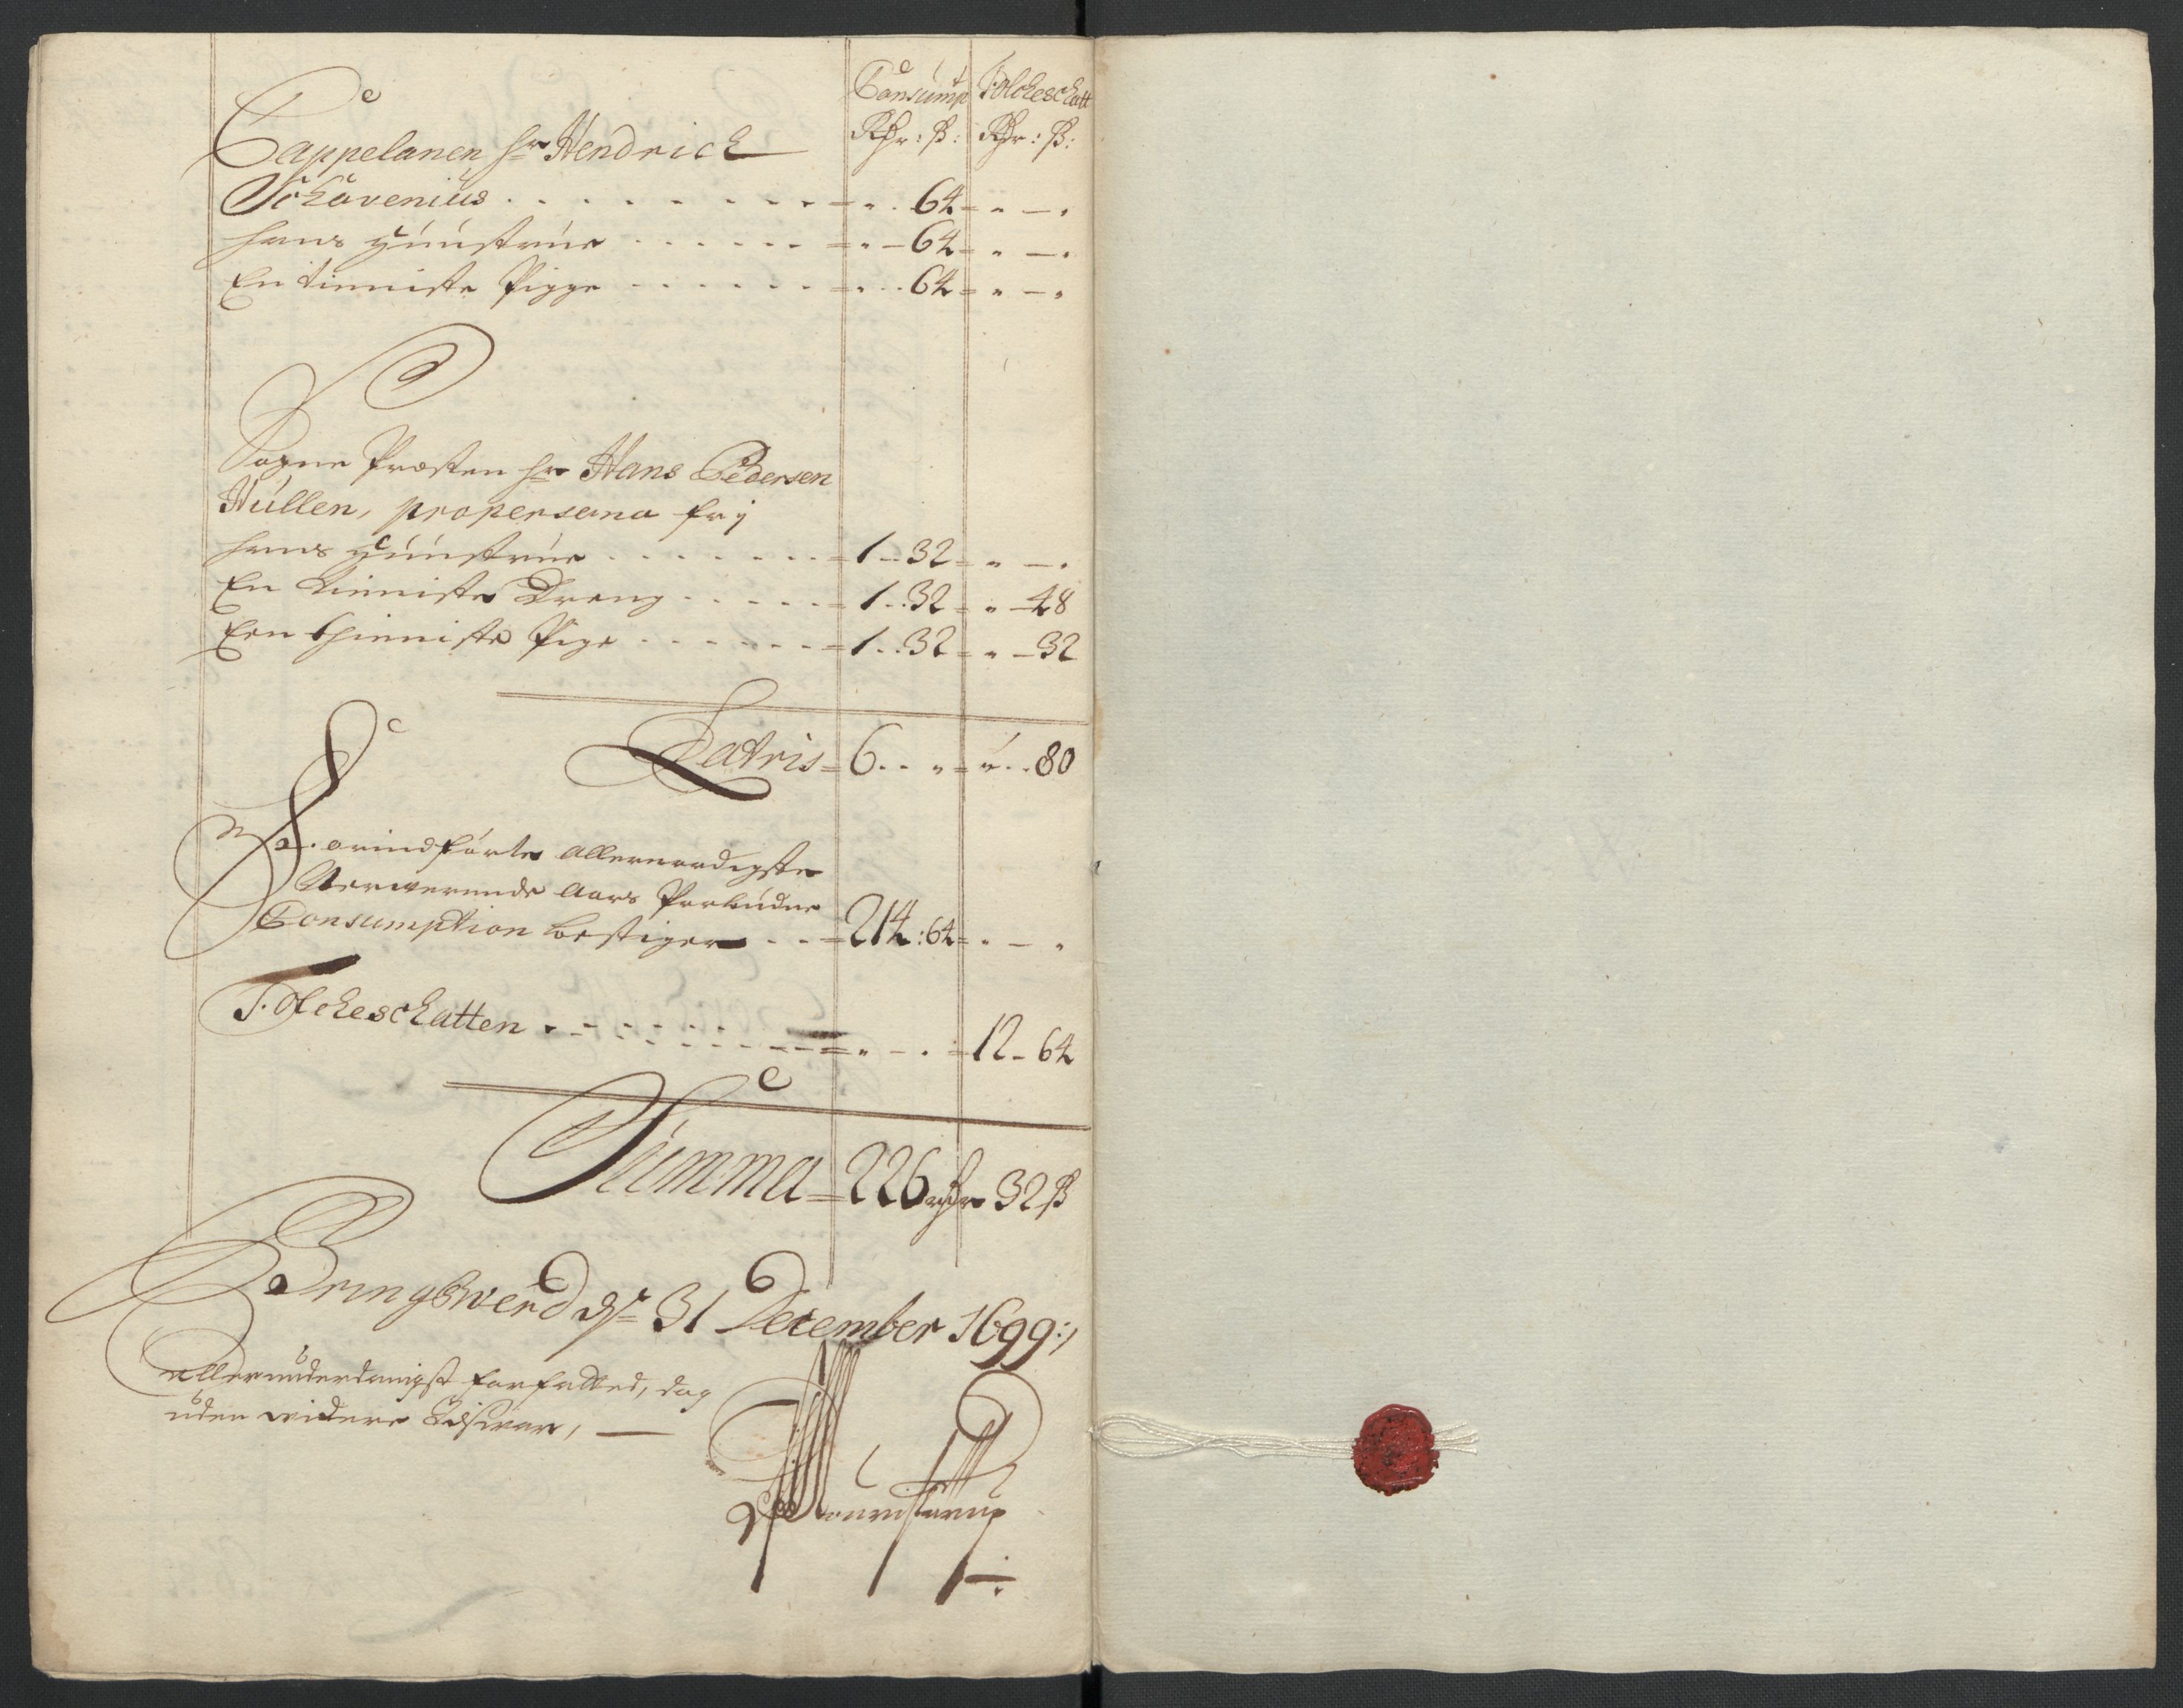 Consumpt Folcheschatt
Rdr: ß: Rdr: ß:
Cappelanen hr Hendrick
Schavenius . . . . . . . . . = " . 64 = " — "
hans Huustrue . . . . . . = " — 64 = " — "
En tienniste Pigge - - - - - - = " . . 64 = " — "
Sogne Præsten hr Hans Pedersen
Húllen, propersona frj
hans Huustrue . . . . . . . = 1 - 32 = " — "
En tienniste Dreng - - - - - = 1 . . 32 = " — 48
Een thienniste Pige - - - - - - = 1 . . 32 = " — 32
Latris = 6 . . " = " . . 80
Foranførte allernaadigste
Nerværende Aars Paabudne
Consumption bestiger . . = 214 : 64 = " — "
Folcheschatten . - - - - - = " — " = 12 - 64
Summa = 226 rdr 32 ß
Bringswerd dn 31 December 1699:/
allerunderdanigst forfatted, dog
uden widere Eedsvar, —